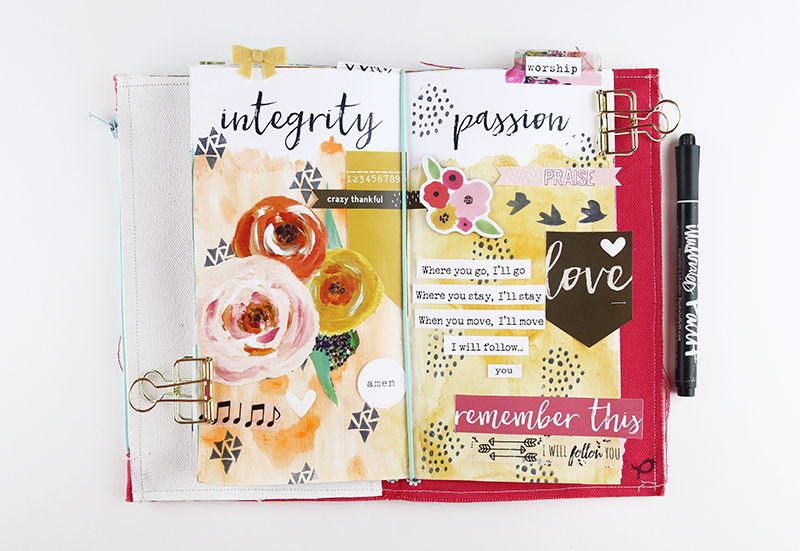 worship
integrity
123456789
crazy thankful
amen
passion
PRAISE
love
Where you go, I'll go
Where you stay, I'll stay
When you move, I'll move
I will follow...
you
remember this
I WILL follow YOU
Illustrated Faith